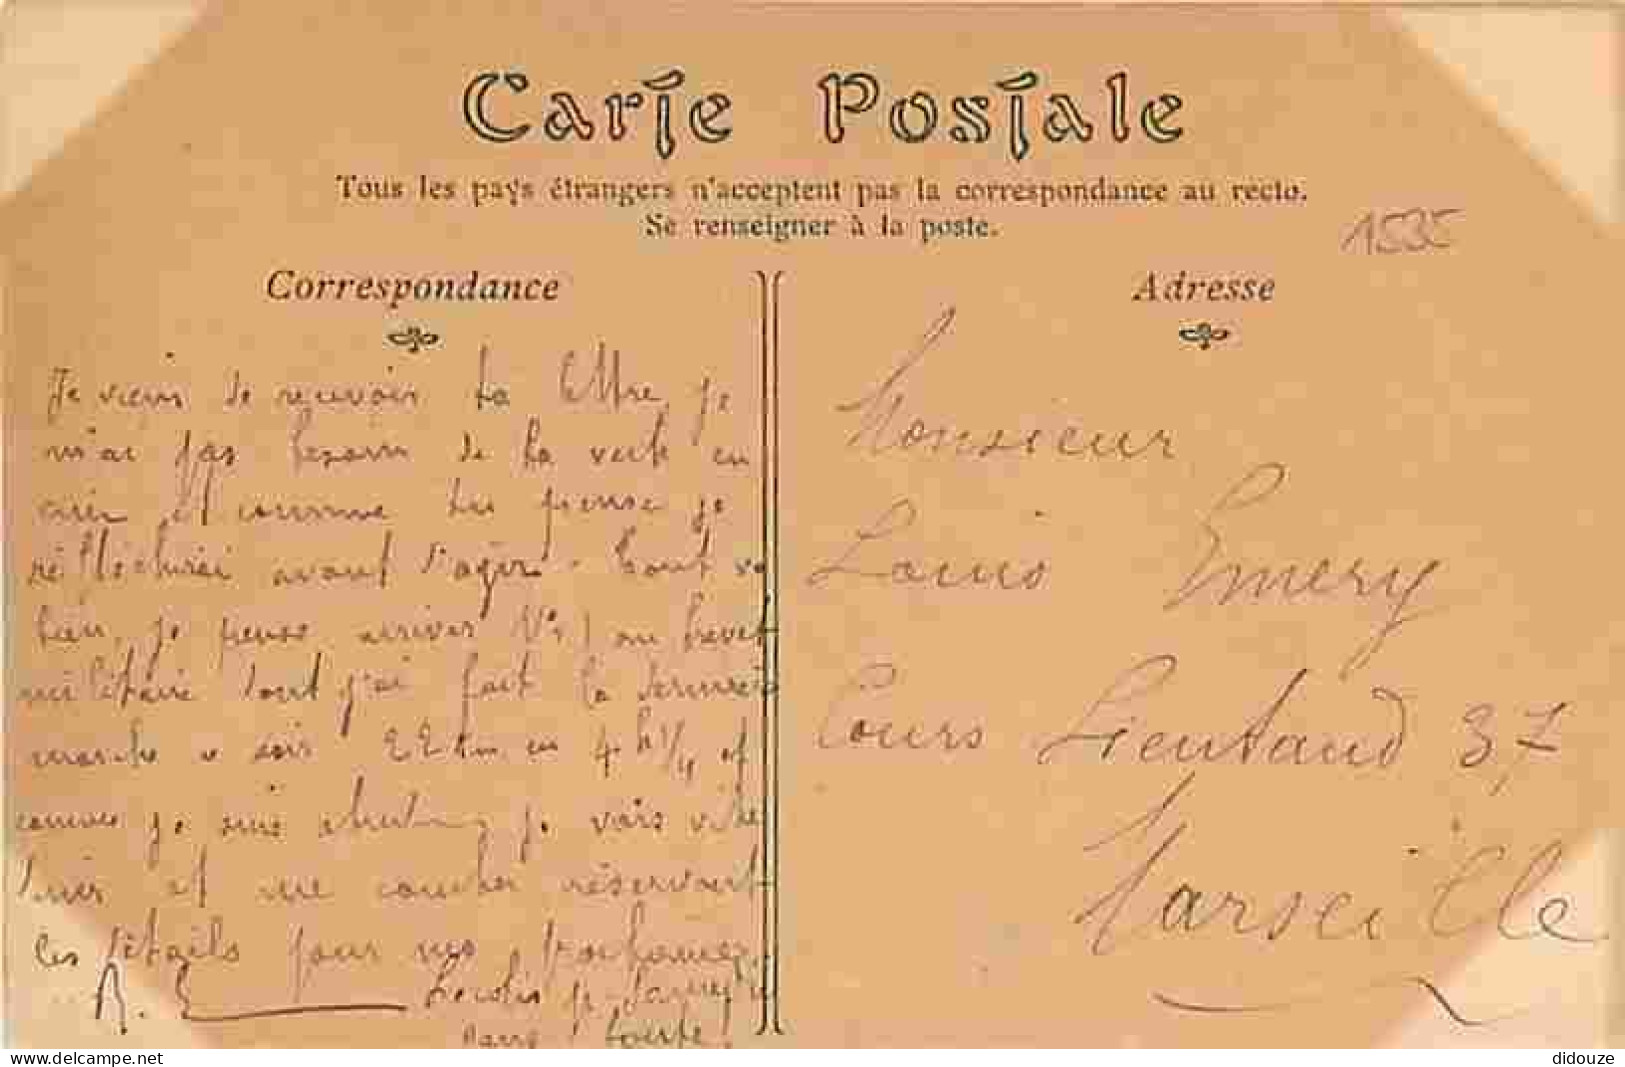 Carte Postale
Tous les pays étrangers n'acceptent pas la correspondance au recto.
Se renseigner à la poste.
1535
Correspondance
Adresse
Je viens de recevoir ta lettre, je
n'ai pas besoin de la veste en
cuir et comme tu pense je
réfléchirai avant d'agir. Tout va
bien, je pense arriver N° 1 au brevet
militaire dont j'ai fait la dernière
marche ce soir 22 km en 4 h 1/4 et
comme je suis je vais vite
et me coucher réservant
les détails pour mes
R. E
Monsieur
Louis Emery
Cours Lieutaud 37
Marseille
delcampe.net
didouze